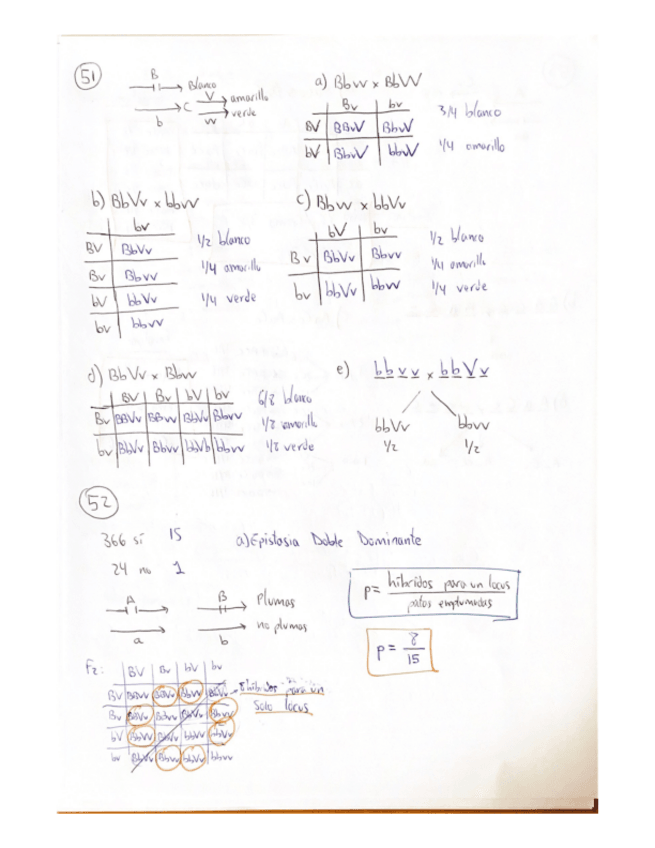 51
B
Blanco
V
amarillo
C
verde
b
vv
a) Bbvv x BbVV
Bv bv
BV BBvV BbvV
bV BbvV bbvV
3/4 blanco
1/4 amarillo
b) BbVv x bbvv
bv
BV BbVv
Bv Bbvv
bV bbVv
bv bbvv
1/2 blanco
1/4 amarillo
1/4 verde
c) Bbvv x bbVv
bV bv
Bv BbVv Bbvv
bv bbVv bbvv
1/2 blanco
1/4 amarillo
1/4 verde
d) BbVv x Bbvv
BV Bv bV bv
Bv BBVv BBvv BbVv Bbvv
bv BbVv Bbvv bbVb bbvv
6/8 blanco
1/8 amarillo
1/8 verde
e) bbvv x bbVv
bbVv bbvv
1/2 1/2
52
366 sí 15
24 no 1
a) Epistasia Doble Dominante
A B Plumas
a b no plumas
p = híbridos para un locus
patos emplumados
p = 8
15
F2:
BV Bv bV bv
BV
Bv
bV
bv
híbridos para un
solo locus